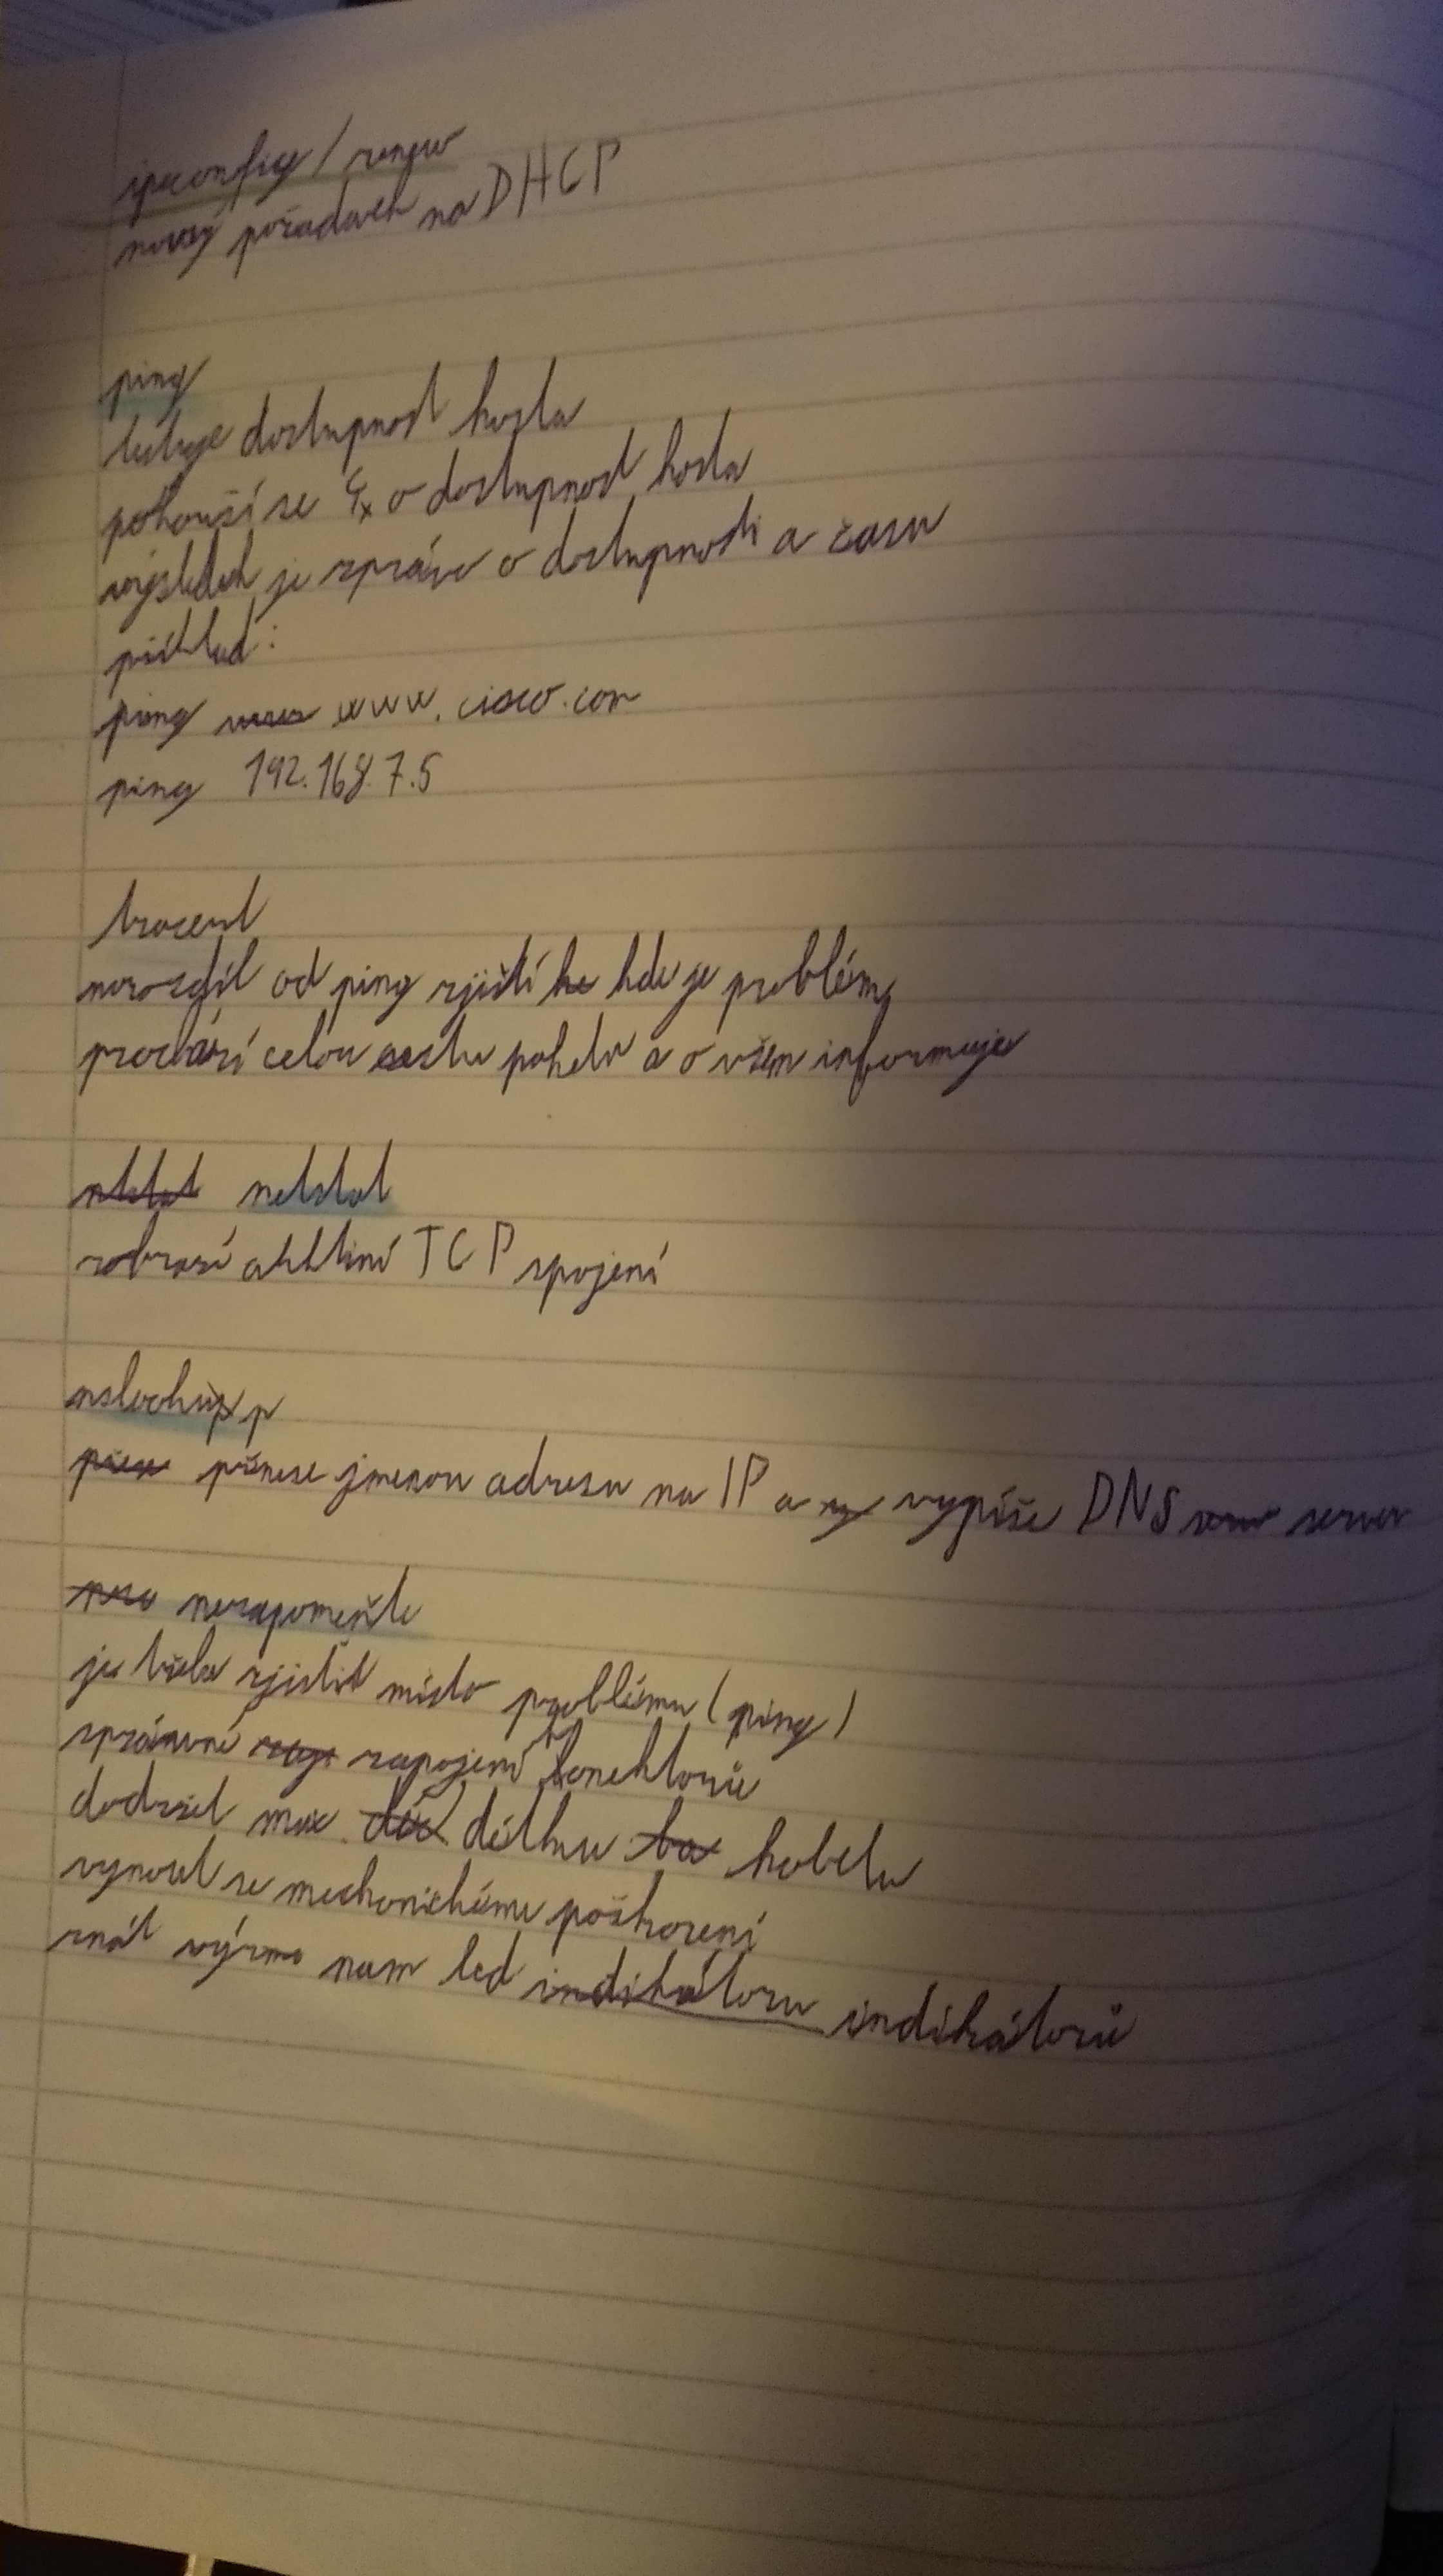 ipconfig / renew
nový požadavek na DHCP
ping
testuje dostupnost hosta
pokouší se 4x o dostupnost hosta
výsledek je zpráva o dostupnosti a času
příklad:
ping www.cisco.com
ping 192.168.7.5
tracert
narozdíl od ping zjistí kde je problém
prochází celou cestu paketu a o všem informuje
netstat
zobrazí aktivní TCP spojení
nslookup
přenese jmenou adresu na IP a vypíše DNS server
nezapomeňte
je třeba zjistit místo problému (ping)
správné zapojení konektorů
dodržet max. délku kabelu
vynout se mechanickému poškození
znát význa nam led indikátorů